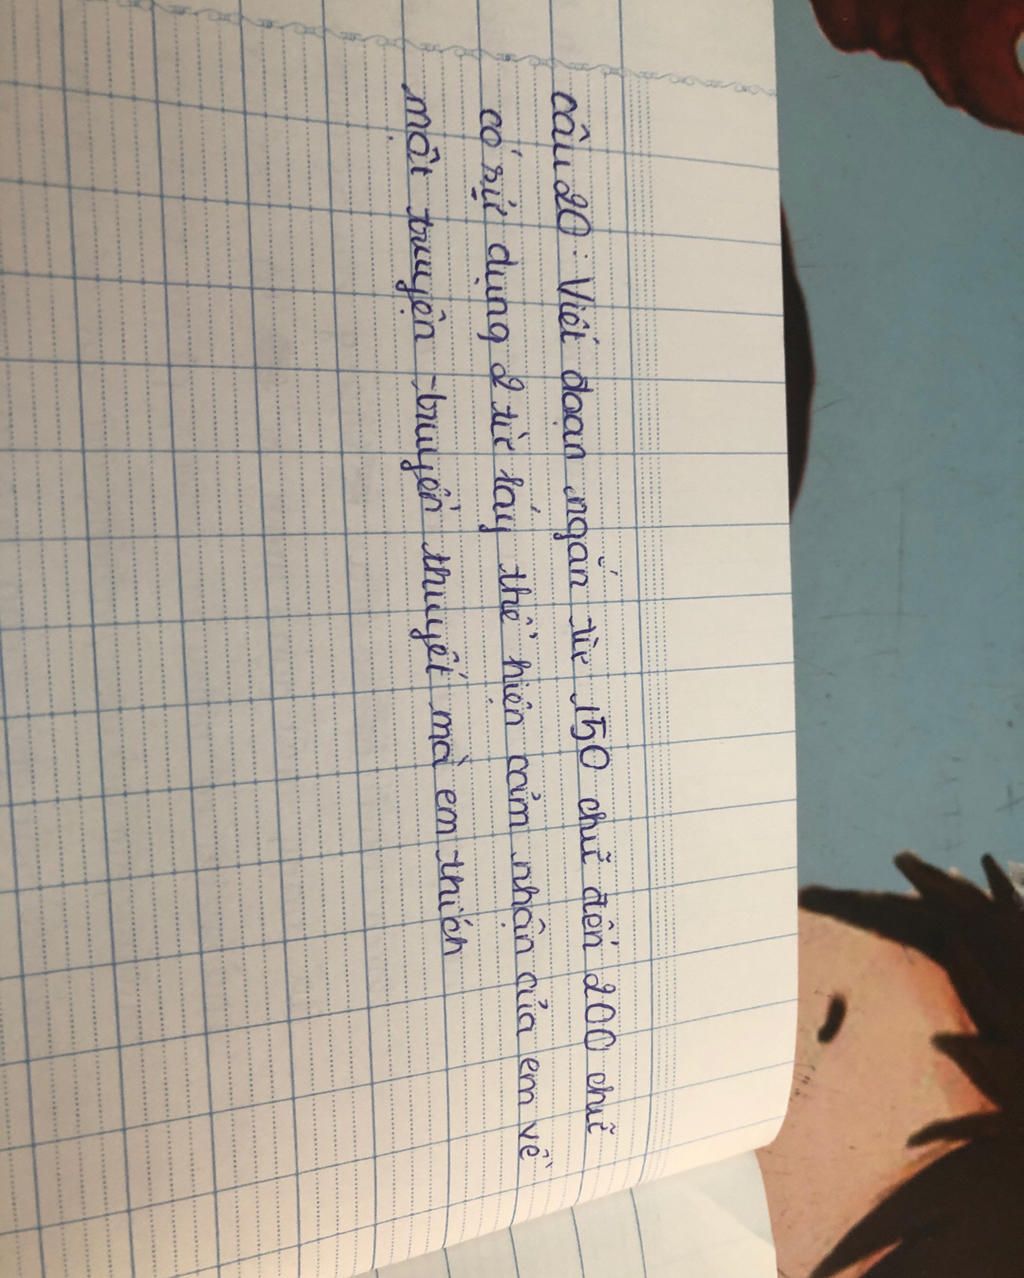 câu 20: Viết đoạn ngắn từ 150 chữ đến 200 chữ
có sử dụng 2 từ láy thể hiện cảm nhận của em về
một truyện truyền thuyết mà em thích